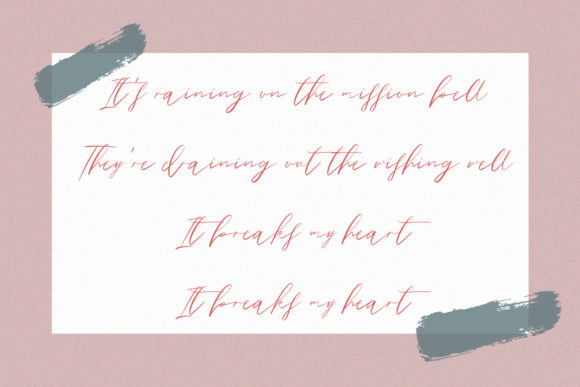 It's raining on the mission bell
They're draining out the wishing well
It breaks my heart
It breaks my heart